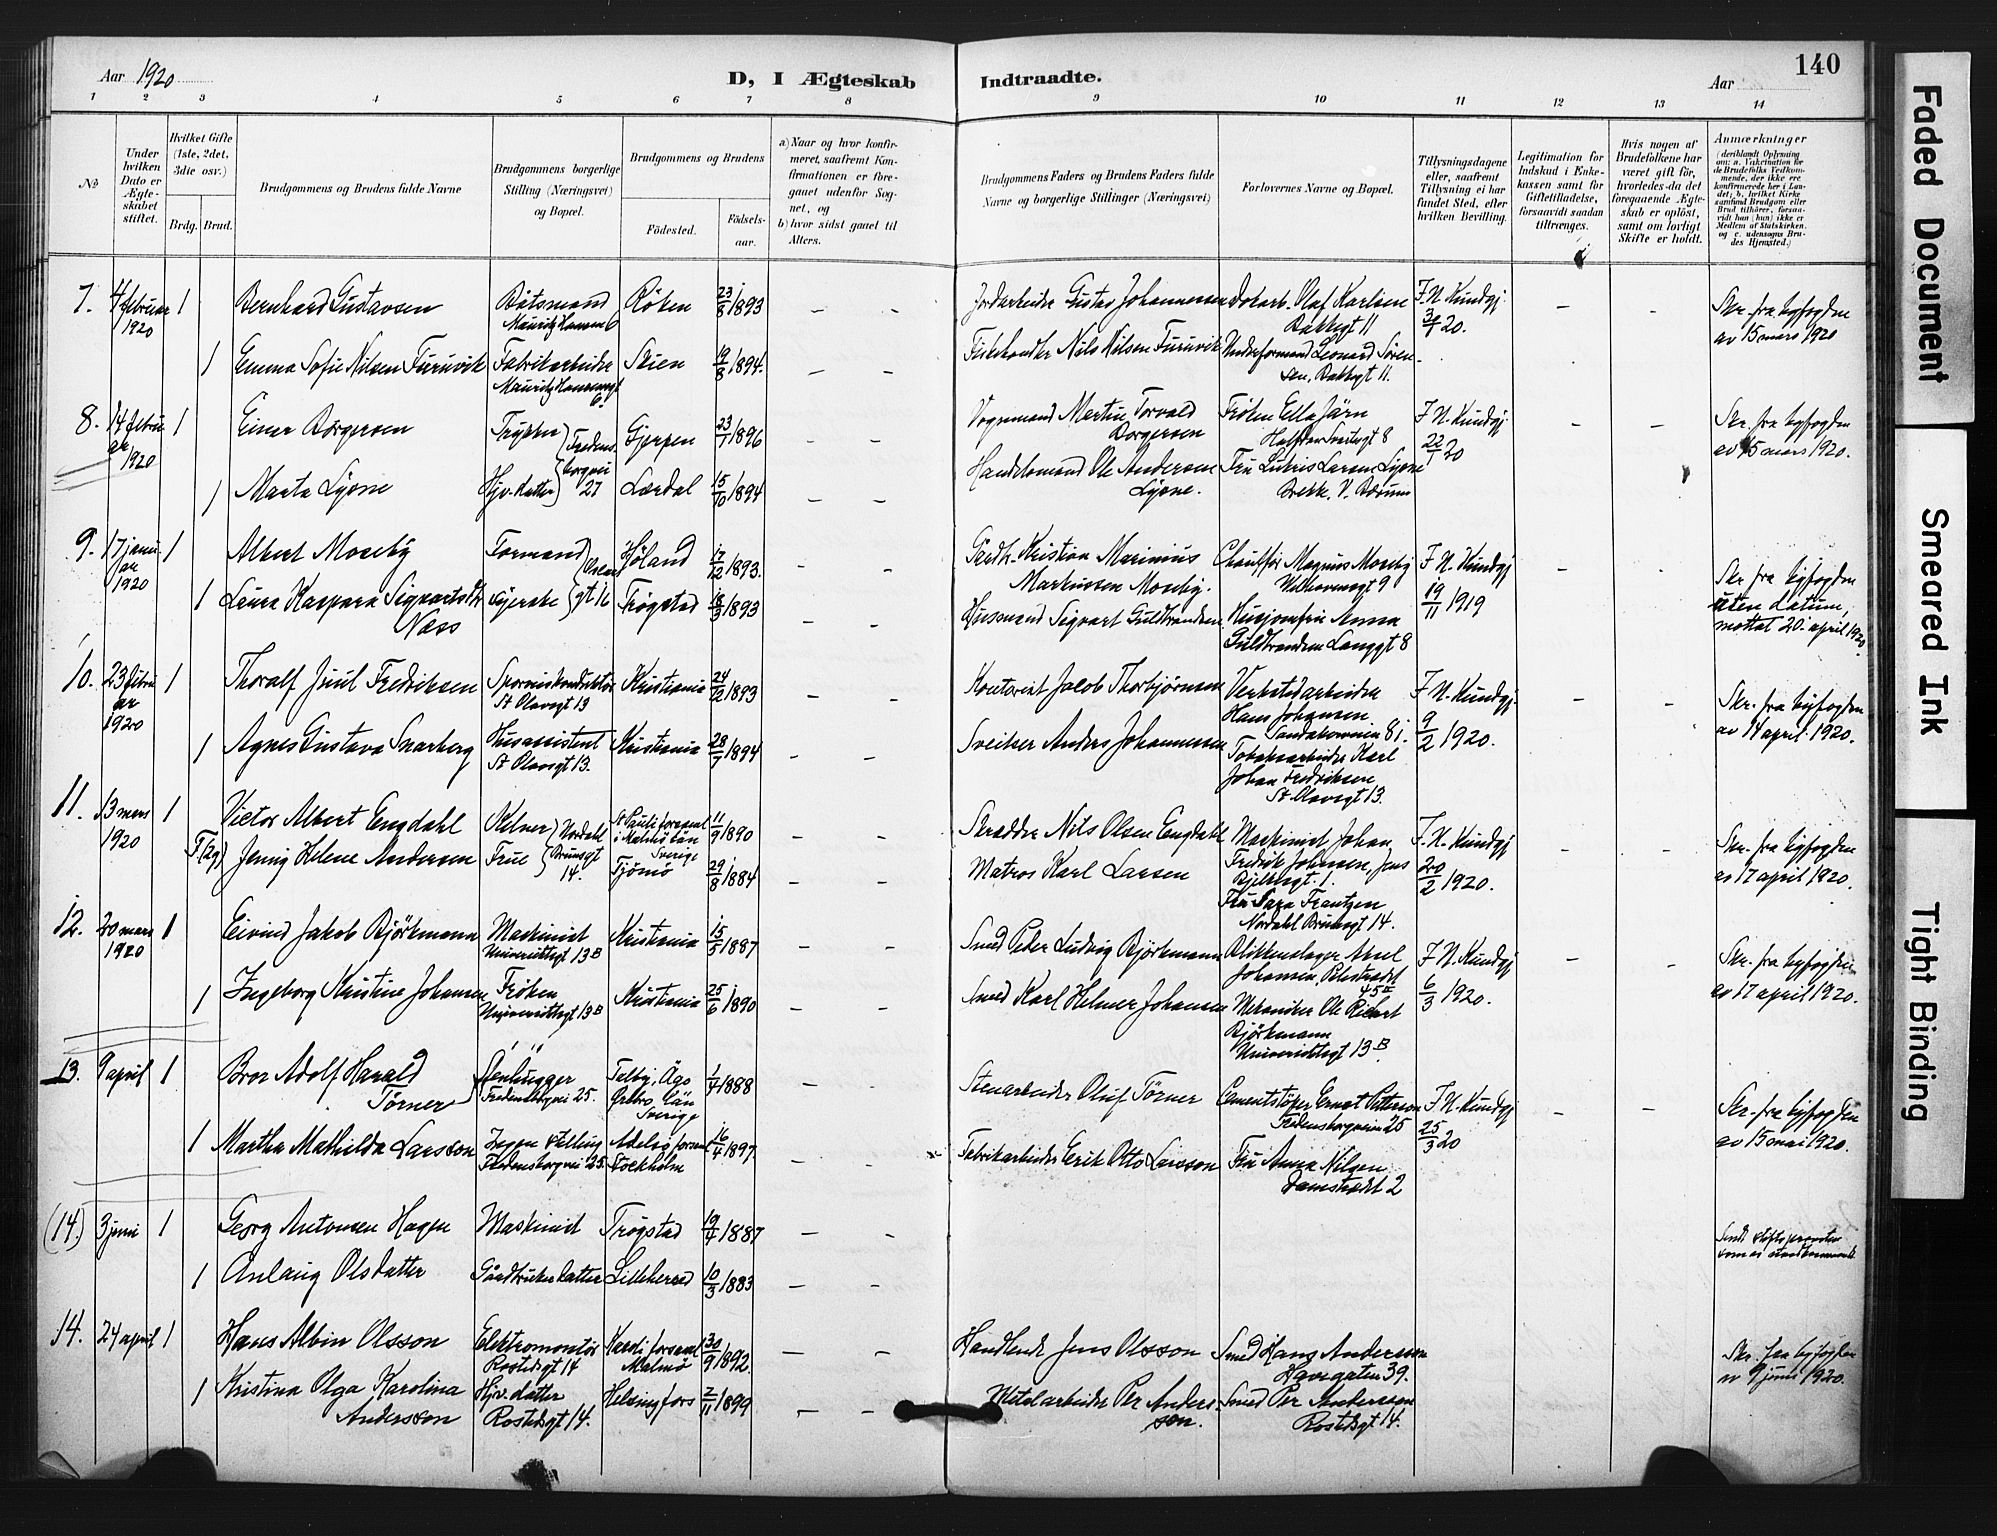 Aar 1920
D, I Ægteskab
Indtraadte.
Aar
140
1 2 3 4 5 6 7 8 9 10 11 12 13 14
No
Under hvilken Dato er Ægteskabet stiftet.
Hvilket Gifte (1ste, 2det, 3die osv.)
Brdg. Brud.
Brudgommens og Brudens fulde Navne
Brudgommens borgerlige Stilling (Næringsvei) og Bopæl.
Brudgommens og Brudens
Fødested.
Fødsels-aar.
a) Naar og hvor konfirmeret, saafremt Konfirmationen er foregaaet udenfor Sognet, og
b) hvor sidst gaaet til Alters.
Brudgommens Faders og Brudens Faders fulde Navne og borgerlige Stillinger (Næringsvei)
Forlovernes Navne og Bopæl.
Tillysningsdagene eller, saafremt Tillysning ei har fundet Sted, efter hvilken Bevilling.
Legitimation for Indskud i Enkekassen samt for Giftetilladelse, forsaavidt saadan tiltrænges.
Hvis nogen af Brudefolkene har været gift før, hvorledes da det foregaaende Ægteskab er opløst, samt om lovligt Skifte er holdt.
Anmærkninger
7. 4 februar 1920 1 Bernhard Gustavsen Båtsmand Mauritz Hansensg 6 Røken 23/8 1893 – – Jordarbeider Gustav Johannessen Dokarb. Olaf Karlsen Bakkegt 11 F. N. Kundgj. – – Skr. fra byfogden av 15 mars 1920
1 Emma Sofie Nilsen Furuvik Fabrikarbeider Mauritz Hansensgt 6. Skien 19/8 1894. – – Fiskehandler Nils Nilsen Furuvik Underformand Leonard Sørensen, Bakkegt 11.
8. 14 februar 1920 1 Einar Borgersen Trykker Fredensborgvei 27 Gjerpen 23/1 1896 – – Vognmand Martin Torvald Borgersen Frøken Ella Järn F. N. Kundgj. 22/1 20 – – Skr. fra byfogden av 15 mars 1920.
1 Marta Lysne Hjv. datter Lærdal 15/10 1894 – – Handelsmand Ole Andersen Lysne. Fru Larsen Lysne Brekke. V. Bærum
9. 17 januar 1920 1 Albert Moseby Formand Høland 17/12 1893. – – Kristian Marinius Markussen Moseby. Chauffør Magnus Moseby Welhavensgt 9 F. N. Kundgj 19/11 1919 – Skr. fra byfogden uten datum, mottat 20. april 1920
1 Laura Kaspara Sigvartsdtr Næss syerske Trøgstad 18/3 1893 – – Husmand Sigvart Guldbrandsen Husjomfru Anna Guldbrandsen Langgt 8
10. 23 februar 1920 1 Thoralf Juul Fredriksen Sporveiskonduktør St Olavsgt 13 Kristiania 24/12 1893 – Kontorist Jacob Thorbjørnsen Verkstedarbeider Hans Johansen Sandakerveien 8 F. N. Kundgj. 9/2 1920. – – Skr. fra byfogden av 14 april 1920.
1 Agnes Gustava Snarberg Husassistent St Olavsgt 13. Kristiania 28/7 1894 – – Sveitser Anders Johannessen Tobaksarbeider Karl Johan Fredriksen St. Olavsgt 13.
11. 13 mars 1920 1 Victor Albert Engdahl Kelner Nordahl Brunsgt 14. St Pauli forsaml i Malmø Län Sverige 11/9 1890 – – Skrædder Nils Olsen Engdahl Maskinist Johan Fredrik Johansen, Jens Bjelkesgt. 1. F. N. Kundgj 20/2 1920. – – Skr. fra byfogden av 17 april 1920.
Jenny Helene Andersen Frue Tjømø 29/8 1884 – – Matros Karl Larsen Fru Frantzen Nordahl Brunsgt 14.
12. 20 mars 1920 1 Eivind Jakob Bjørkmann Maskinist Universitetsgt 13 B Kristiania 15/5 1887 – – Smed Peder Ludvig Bjørkmann Blikkenslager Axel Johansen 45 II F. N. Kundgj 6/3 1920. – – Skr. fra byfogden av 17 april 1920.
1 Ingeborg Kristine Johansen Frøken Universitetsgt 13 B Kristiania 25/6 1890 – – Smed Karl Helmer Johansen Mekaniker Ole Rikert Bjørkmann Universitetsgt 13 B
13. 9 april 1 Bror Adolf Harald Törner Stenhugger Fredensborgvei 25. Örebro Län Sverige 1/4 1888 – Stenarbeider Oluf Törner Cementstøper Ernst Petterson Fredensborgveien 25 F. N. Kundgj 25/3 20 – – Skr. fra byfogden av 15 mai 1920.
1 Martha Mathilda Larsson Ingen stilling Fredensborgvei 25. Adelsö forsaml Stockholm 16/4 1897 – – Fabrikarbeider Erik Otto Larsson Fru Anna Nilsen Damstrædt 2
(14.) 3 juni 1 Georg Antonsen Hagen Maskinist Trøgstad 19/4 1887 – – Sendt stiftsprovsten
1 Anlaug Olsdatter Gårdbrukerdatter Lilleherred 10/3 1883 – –
14. 24 april 1 Hans Albin Olsson Elektromontør Rostedsgt 14 Karoli forsaml Malmø 30/9 1892. – – Handlende Jens Olsson Smed Hans Andersson Havegaten 39. Skr. fra byfogden av 9 juni 1920.
1 Kristina Olga Karolina Andersson Hjv. datter Rostedsgt 14. Helsingfors 2/11 1899 – – Metalarbeider Per Andersson. Smed Per Andersson Rostedsgt 14.
Faded Document
Smeared Ink
Tight Binding